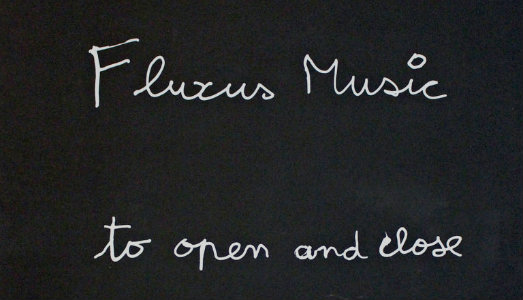 Fluxus Music
to open and close